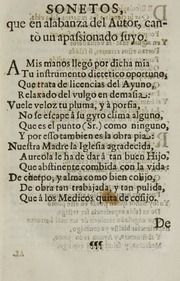 SONETOS,
que en alabanza del Autor, can-
tò un apasionado suyo.
A Mis manos llegó por dicha mia
Tu instrumento dietetico oportuno,
Que trata de licencias del Ayuno,
Relaxado del vulgo en demasia.
Vuele veloz tu pluma, y à porfia,
No se escape à su gyro clima alguno,
Que es el punto (Sr.) como ninguno,
Y por esso tambien es la obra pia.
Nuestra Madre la Iglesia agradecida,
Aureola le ha de dar à tan buen Hijo,
Que abstinente combida con la vida:
De cuerpo, y alma como bien colijo,
De obra tan trabajada, y tan pulida,
Que à los Medicos quita de cosijo.
De